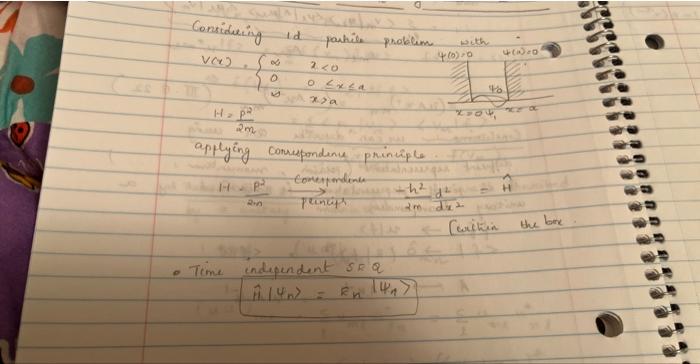 Considering 1d particle problem with
ψ(0)=0 ψ(a)=0
V(x) = { ∞ x<0
0 0 ≤ x ≤ a
∞ x>a
x=0 ψ₁ x=a
H = p²
2m
applying correspondence principle.
H = p² Correspondence → -ħ² d² = Ĥ
2m principle 2m dx²
(within the box.
• Time independent SEQ
Ĥ |ψn> = En |ψn>